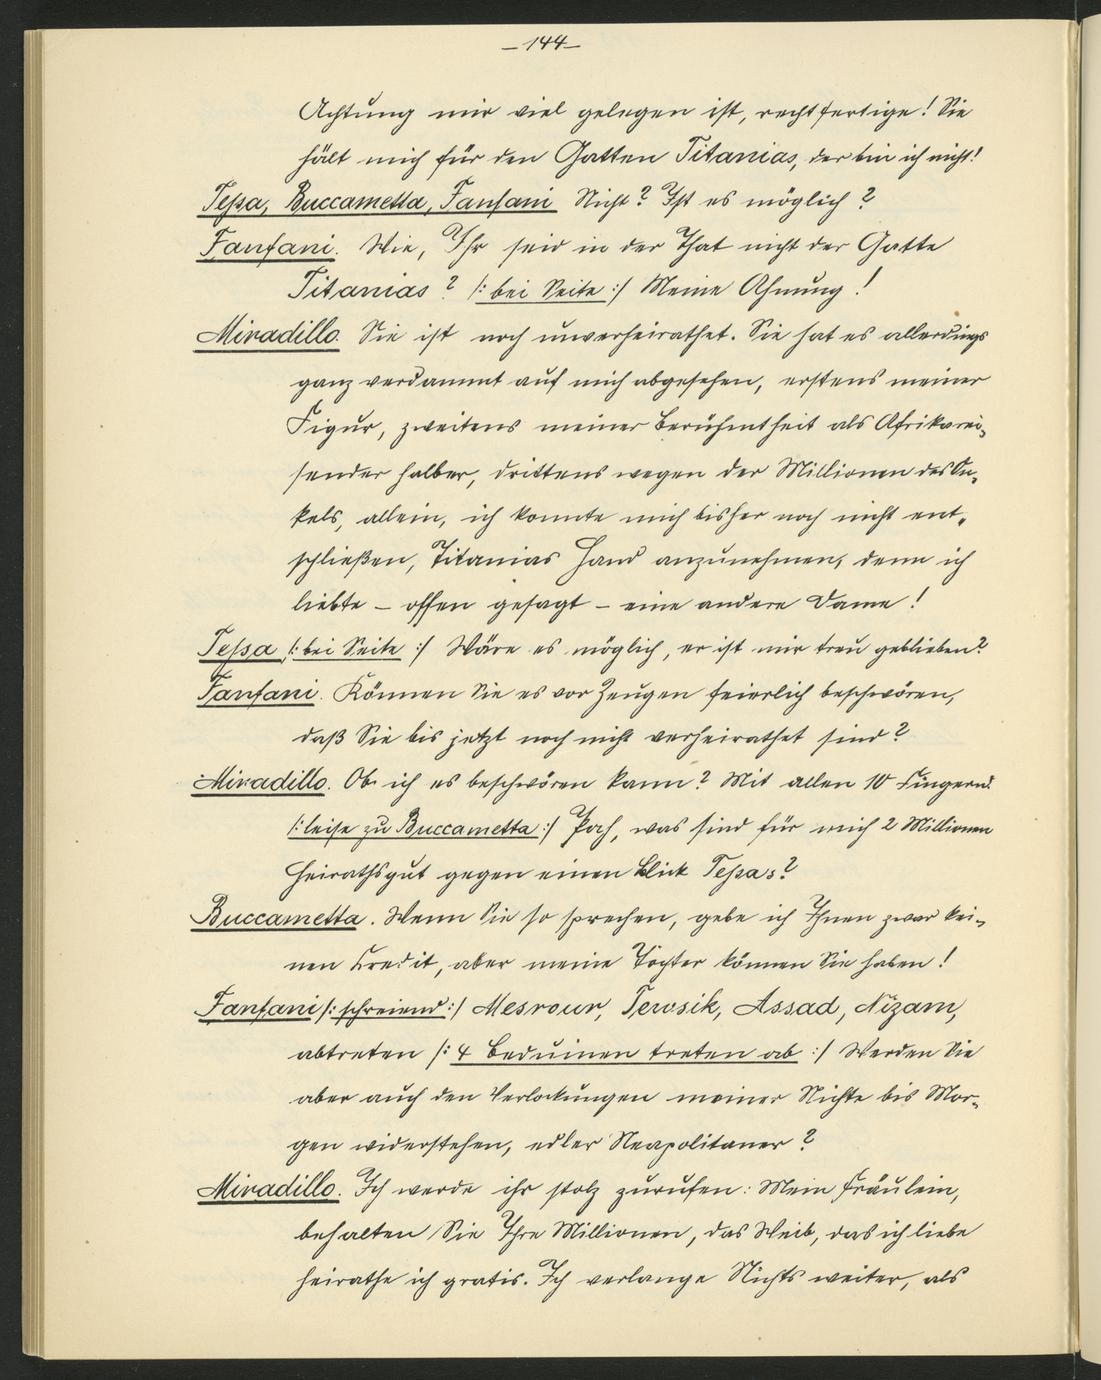 – 144 –
Achtung mir viel gelegen ist, rechtfertige! Sie
hält mich für den Gatten Titanias, der bin ich nicht!
Teßa, Buccametta, Fanfani Nicht? Ist es möglich?
Fanfani. Wie, Ihr seid in der That nicht der Gatte
Titanias? /: bei Seite :/ Meine Ahnung!
Miradillo. Sie ist noch unverheirathet. Sie hat es allerdings
ganz verdammt auf mich abgesehen, erstens meiner
Figur, zweitens meiner Berühmtheit als Afrikarei-
sender halber, drittens wegen der Millionen des On-
kels, allein, ich konnte mich bisher noch nicht ent-
schließen, Titanias Hand anzunehmen, denn ich
liebte – offen gesagt – eine andere Dame!
Teßa /: bei Seite :/ Wäre es möglich, er ist mir treu geblieben?
Fanfani. Können Sie es vor Zeugen feierlich beschwören,
daß Sie bis jetzt noch nicht verheirathet sind?
Miradillo. Ob ich es beschwören kann? Mit allen 10 Fingern!
/: leise zu Buccametta :/ Pah, was sind für mich 2 Millionen
Heirathsgut gegen einen Blick Teßas?
Buccametta. Wenn Sie so sprechen, gebe ich Ihnen zwar kei-
nen Credit, aber meine Tochter können Sie haben!
Fanfani /: schreiend :/ Mesrour, Tewsik, Assad, Nizam,
abtreten /: 4 Beduinen treten ab :/ Werden Sie
aber auch den Verlockungen meiner Nichte bis Mor-
gen widerstehen, edler Neapolitaner?
Miradillo. Ich werde ihr stolz zurufen: Mein Fräulein,
behalten Sie Ihre Millionen, das Weib, das ich liebe
heirathe ich gratis. Ich verlange Nichts weiter, als